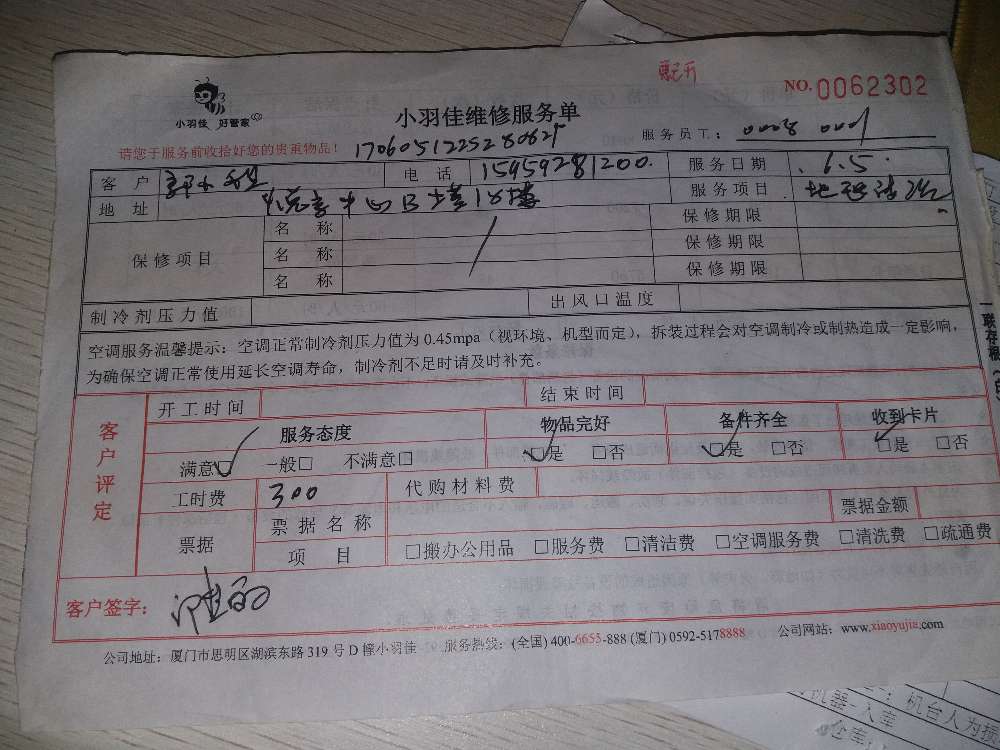 票已开
NO.0062302
小羽佳 好管家
小羽佳维修服务单
请您于服务前收拾好您的贵重物品！
服务员工：0008 0001
客户 电话 15959281200. 服务日期 6.5.
地址 B 18楼 服务项目 地毯清洗
保修项目 名称 保修期限
名称 保修期限
名称 保修期限
制冷剂压力值 出风口温度
空调服务温馨提示：空调正常制冷剂压力值为 0.45mpa（视环境、机型而定），拆装过程会对空调制冷或制热造成一定影响，
为确保空调正常使用延长空调寿命，制冷剂不足时请及时补充。
客户评定
开工时间 结束时间
服务态度 物品完好 备件齐全 收到卡片
满意□ 一般□ 不满意□ □是 □否 □是 □否 □是 □否
工时费 300 代购材料费
票据 票据名称 票据金额
项目 □搬办公用品 □服务费 □清洁费 □空调服务费 □清洗费 □疏通费
客户签字：
公司地址：厦门市思明区湖滨东路 319 号 D 幢小羽佳 服务热线：(全国) 400-6655-888 (厦门) 0592-5178888 公司网站：www.xiaoyujia.com
一联存根
机台人为损
机器-入库
仓库：